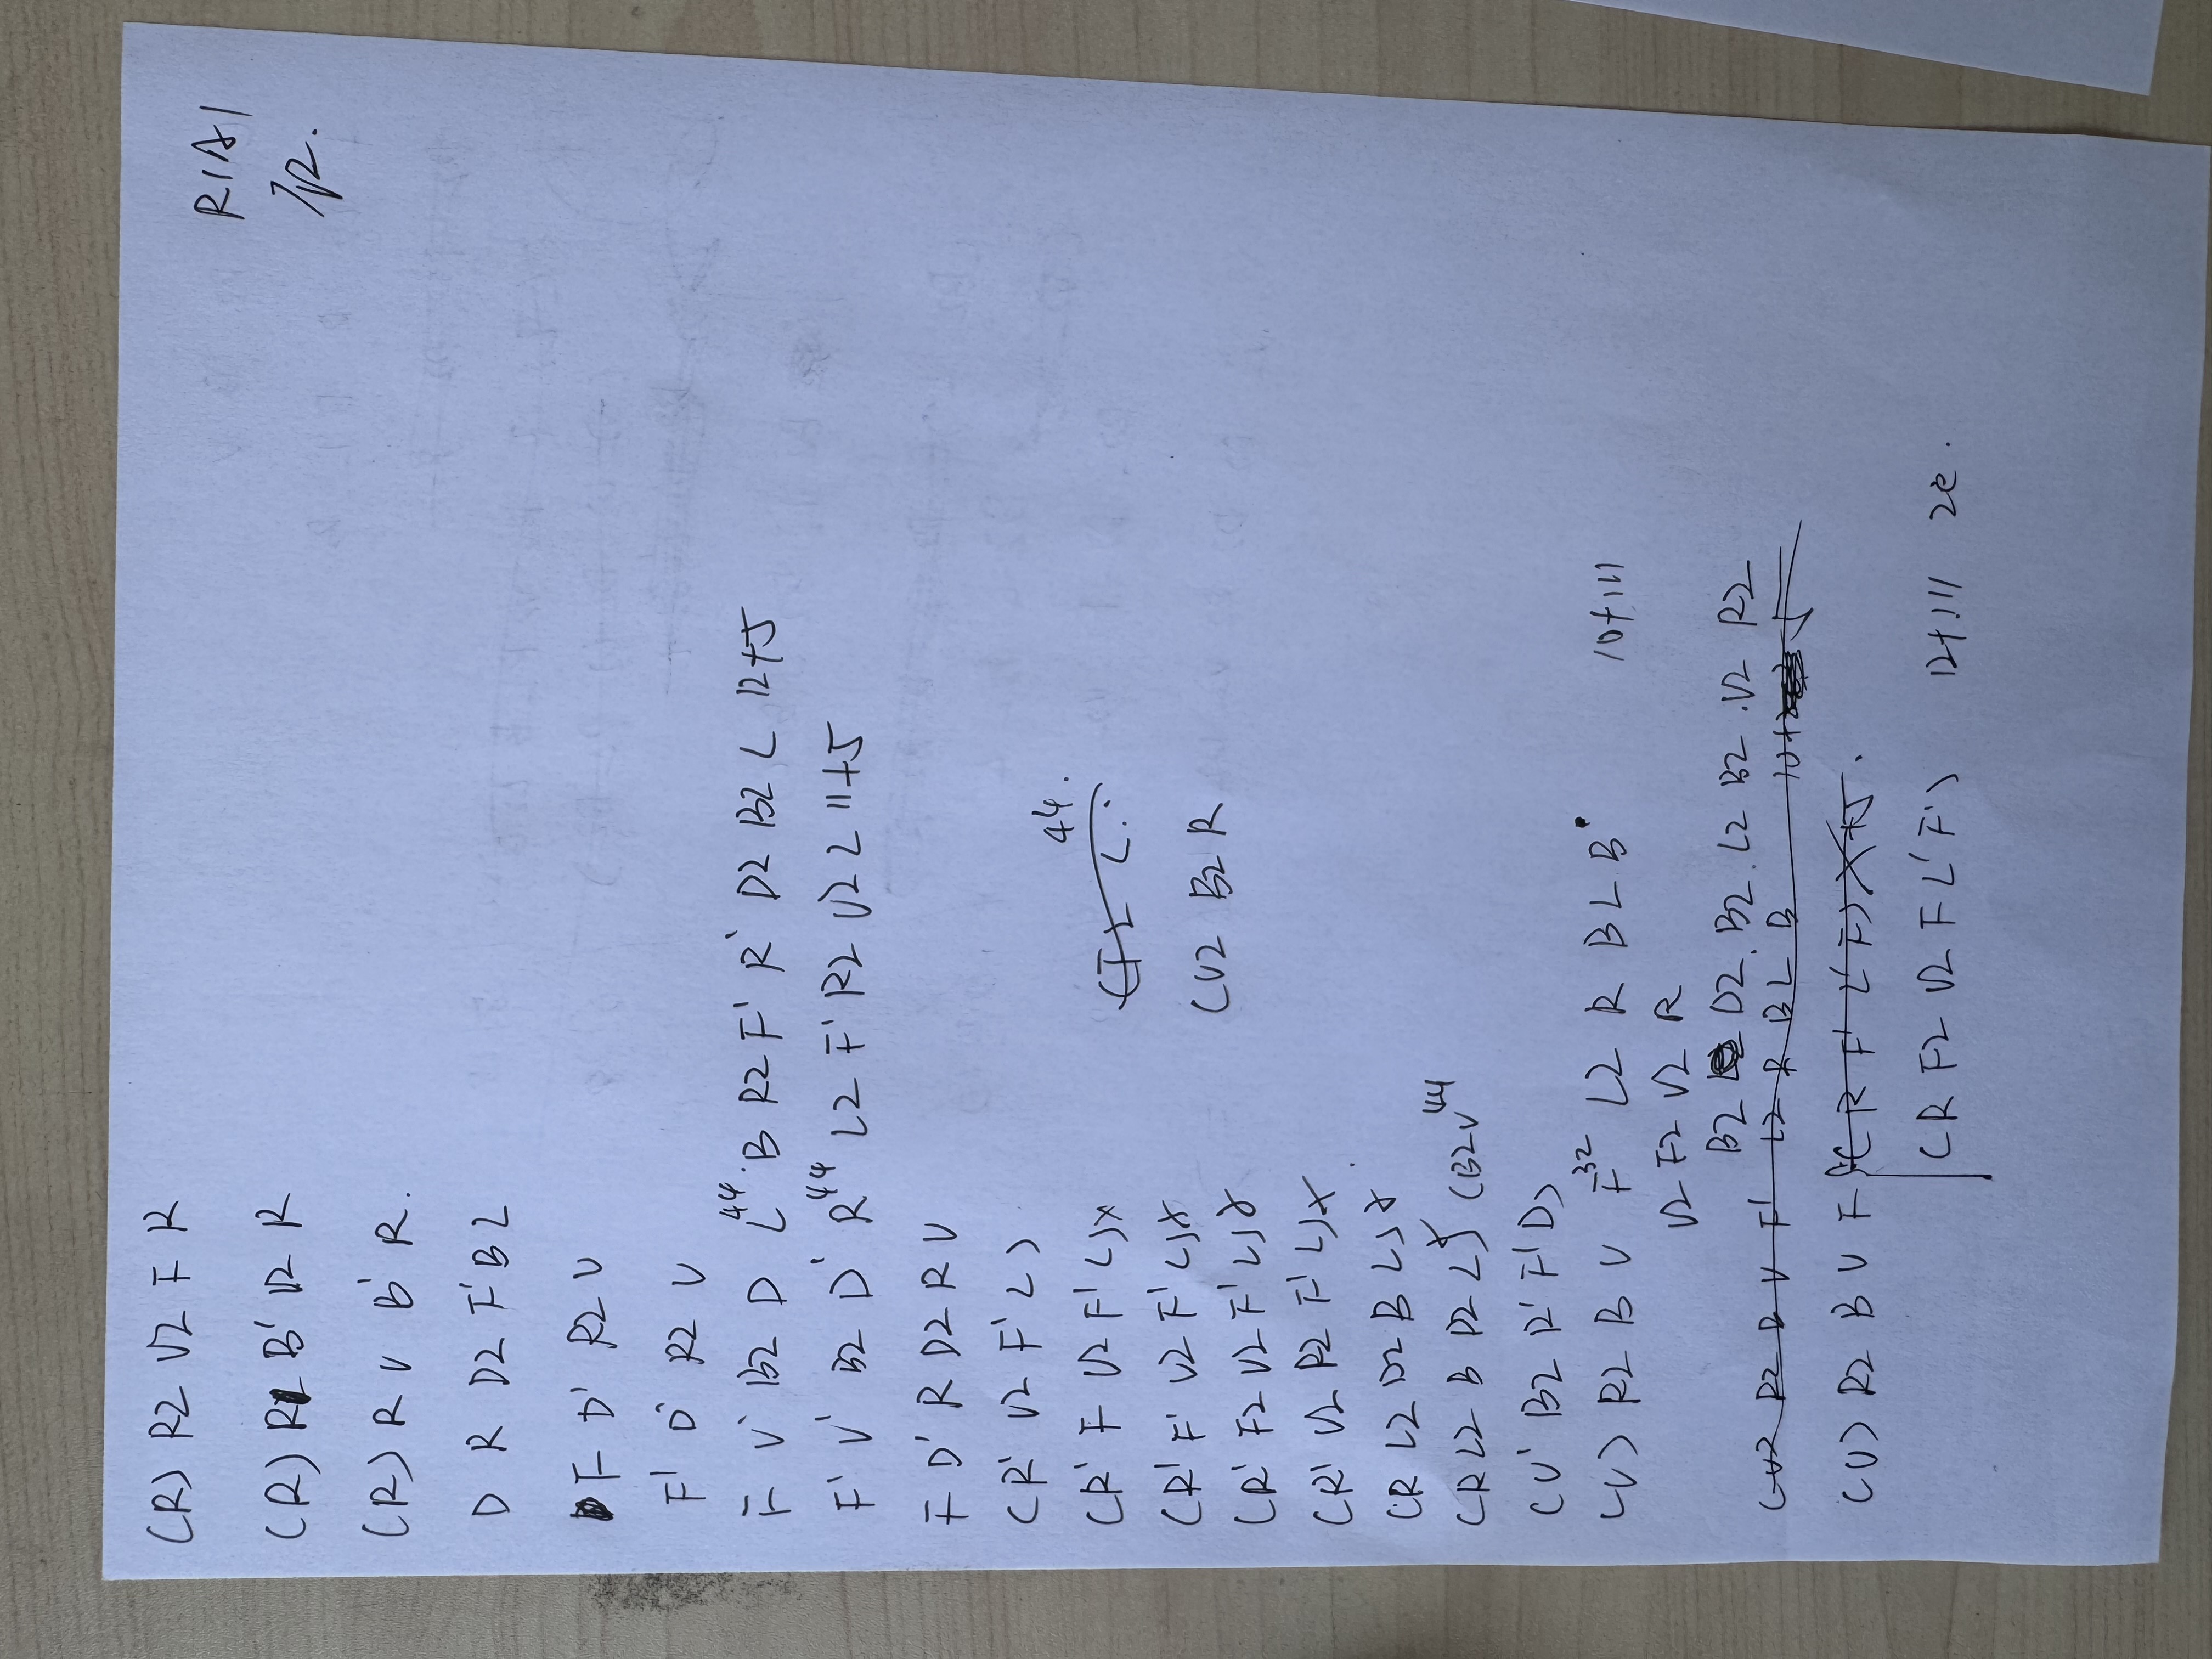 R1A1
(R) R2 U2 F R
(R) R B' U2 R
(R) R U B' R.
D R D2 F' B L
F D' R2 U
F' D' R2 U
F U' B2 D L 44. B R2 F' R' D2 B2 L 12+5
F' U' B2 D' R 44 L2 F' R2 U2 L 11+5
F D' R D2 R U
(R' U2 F' L) 44.
(R' F U2 F' L) x (F2 L..
(R' F' U2 F' L) x (U2 B2 R
(R' F2 U2 F' L) x
(R' U2 R2 F' L) x
(R L2 D2 B L) x
(R L2 B D2 L) (B2 U 44
(U' B2 R' F' D)
(U) R2 B U F 32 L2 R B L B 10+11
U2 F2 U2 R
B2 D2. B2. L2 B2. U2 R2
(U2 R2 B U F' L2 R B L B 10+
(U) R2 B U F (R F' L' F) x +5.
(R F2 U2 F L' F') 12+11 2e.